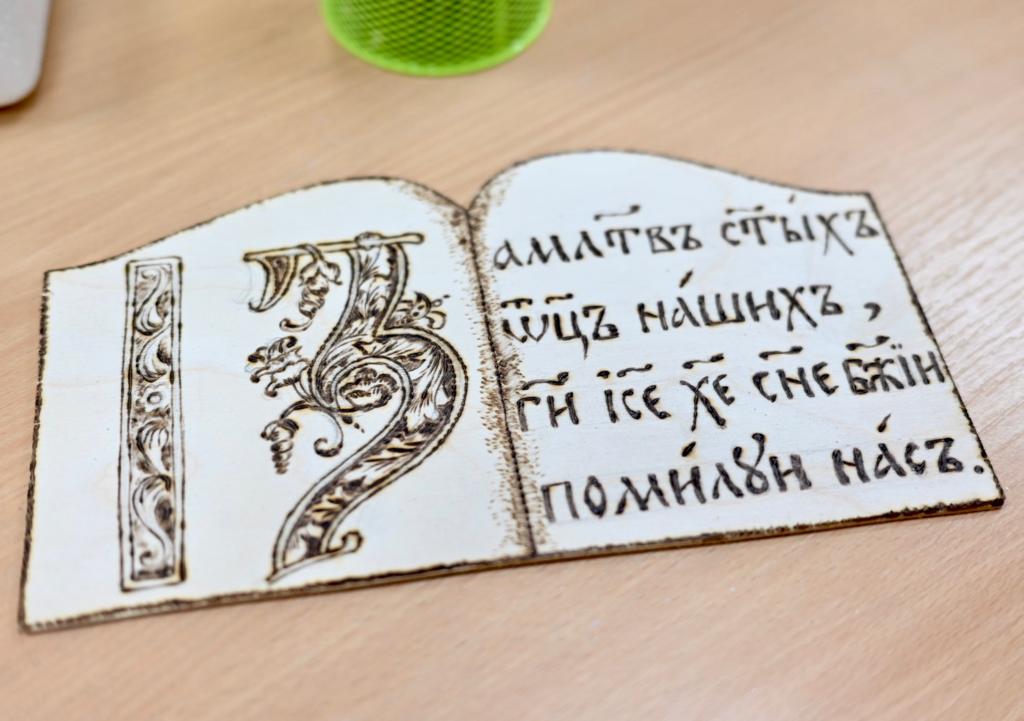 Замлт҃въ ст҃ы́хъ
ѿц҃ъ на́шихъ,
г҃и і҃се х҃е сн҃е бж҃їи
поми́лꙋи на́съ.